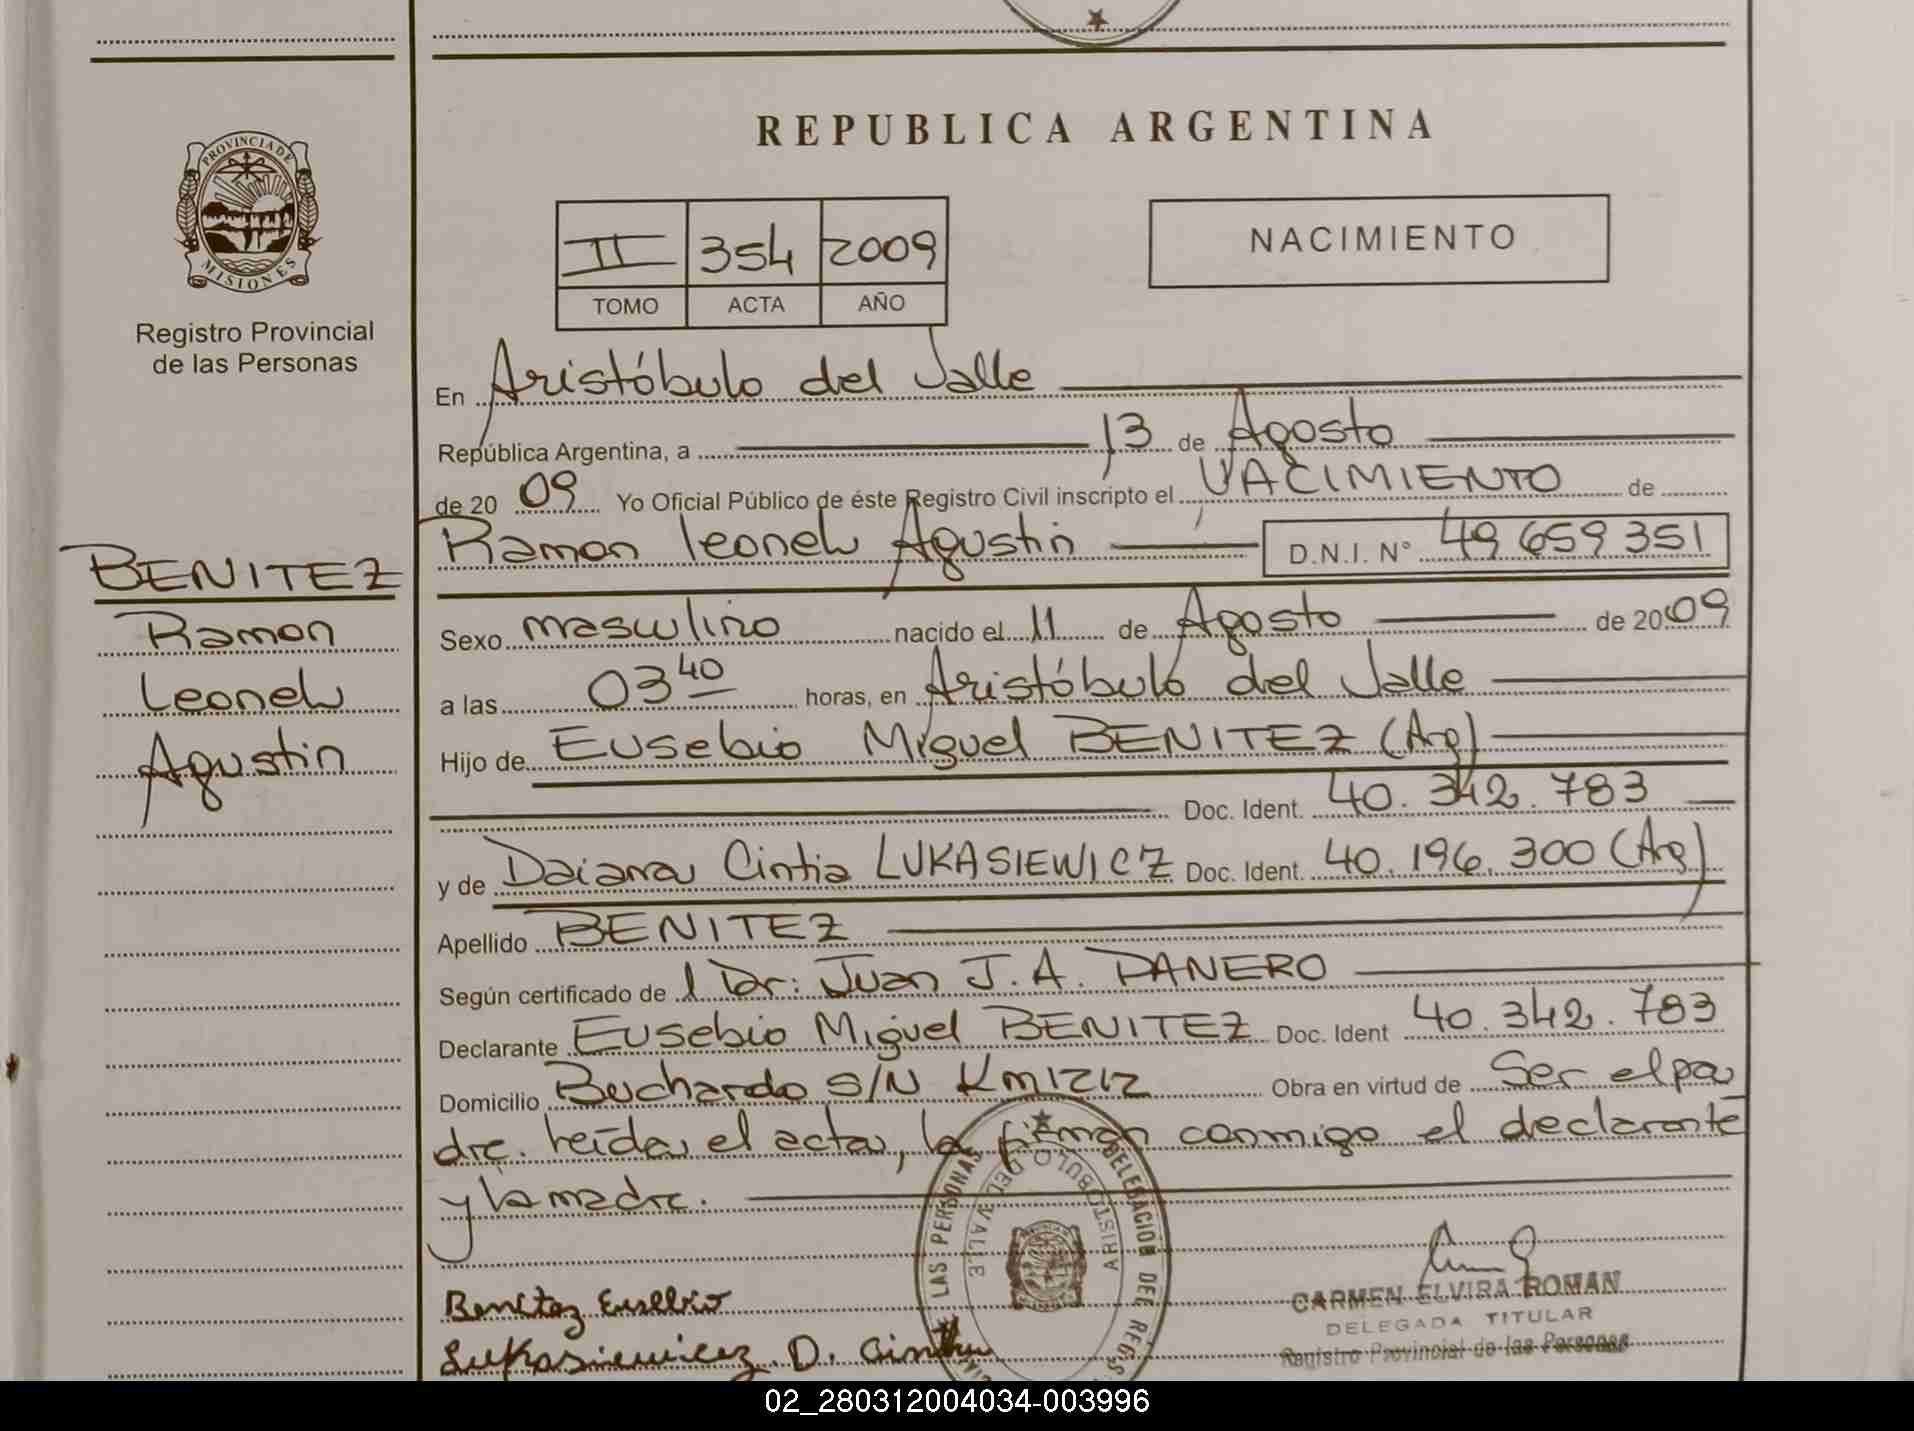 REPUBLICA ARGENTINA
PROVINCIA DE
MISIONES
Registro Provincial
de las Personas
II 354 2009
TOMO ACTA AÑO
NACIMIENTO
En Aristóbulo del Valle
República Argentina, a 13 de Agosto
de 20 09 Yo Oficial Público de éste Registro Civil inscripto el NACIMIENTO de
Ramon Leonel Agustin D.N.I. N° 49 659 351
BENITEZ
Ramon
Leonel
Agustin
Sexo masculino nacido el 11 de Agosto de 2009
a las 03 40 horas, en Aristóbulo del Valle
Hijo de Eusebio Miguel BENITEZ (Arg)
Doc. Ident. 40.342.783
y de Daiana Cintia LUKASIEWICZ Doc. Ident. 40.196.300 (Arg)
Apellido BENITEZ
Según certificado de l Dr: Juan J. A. DANERO
Declarante Eusebio Miguel BENITEZ Doc. Ident 40.342.783
Domicilio Buchardo S/N Km1212 Obra en virtud de Ser el pa
dre. Leída el acta, la firman conmigo el declarante
y la madre.
LAS PERSONAS DELEGACION DEL REGIS
ARISTOBULO DEL VALLE
Benitez Eusebio
Lukasiewicz D. Cintia
CARMEN ELVIRA ROMAN
DELEGADA TITULAR
Registro Provincial de las Personas
02_280312004034-003996